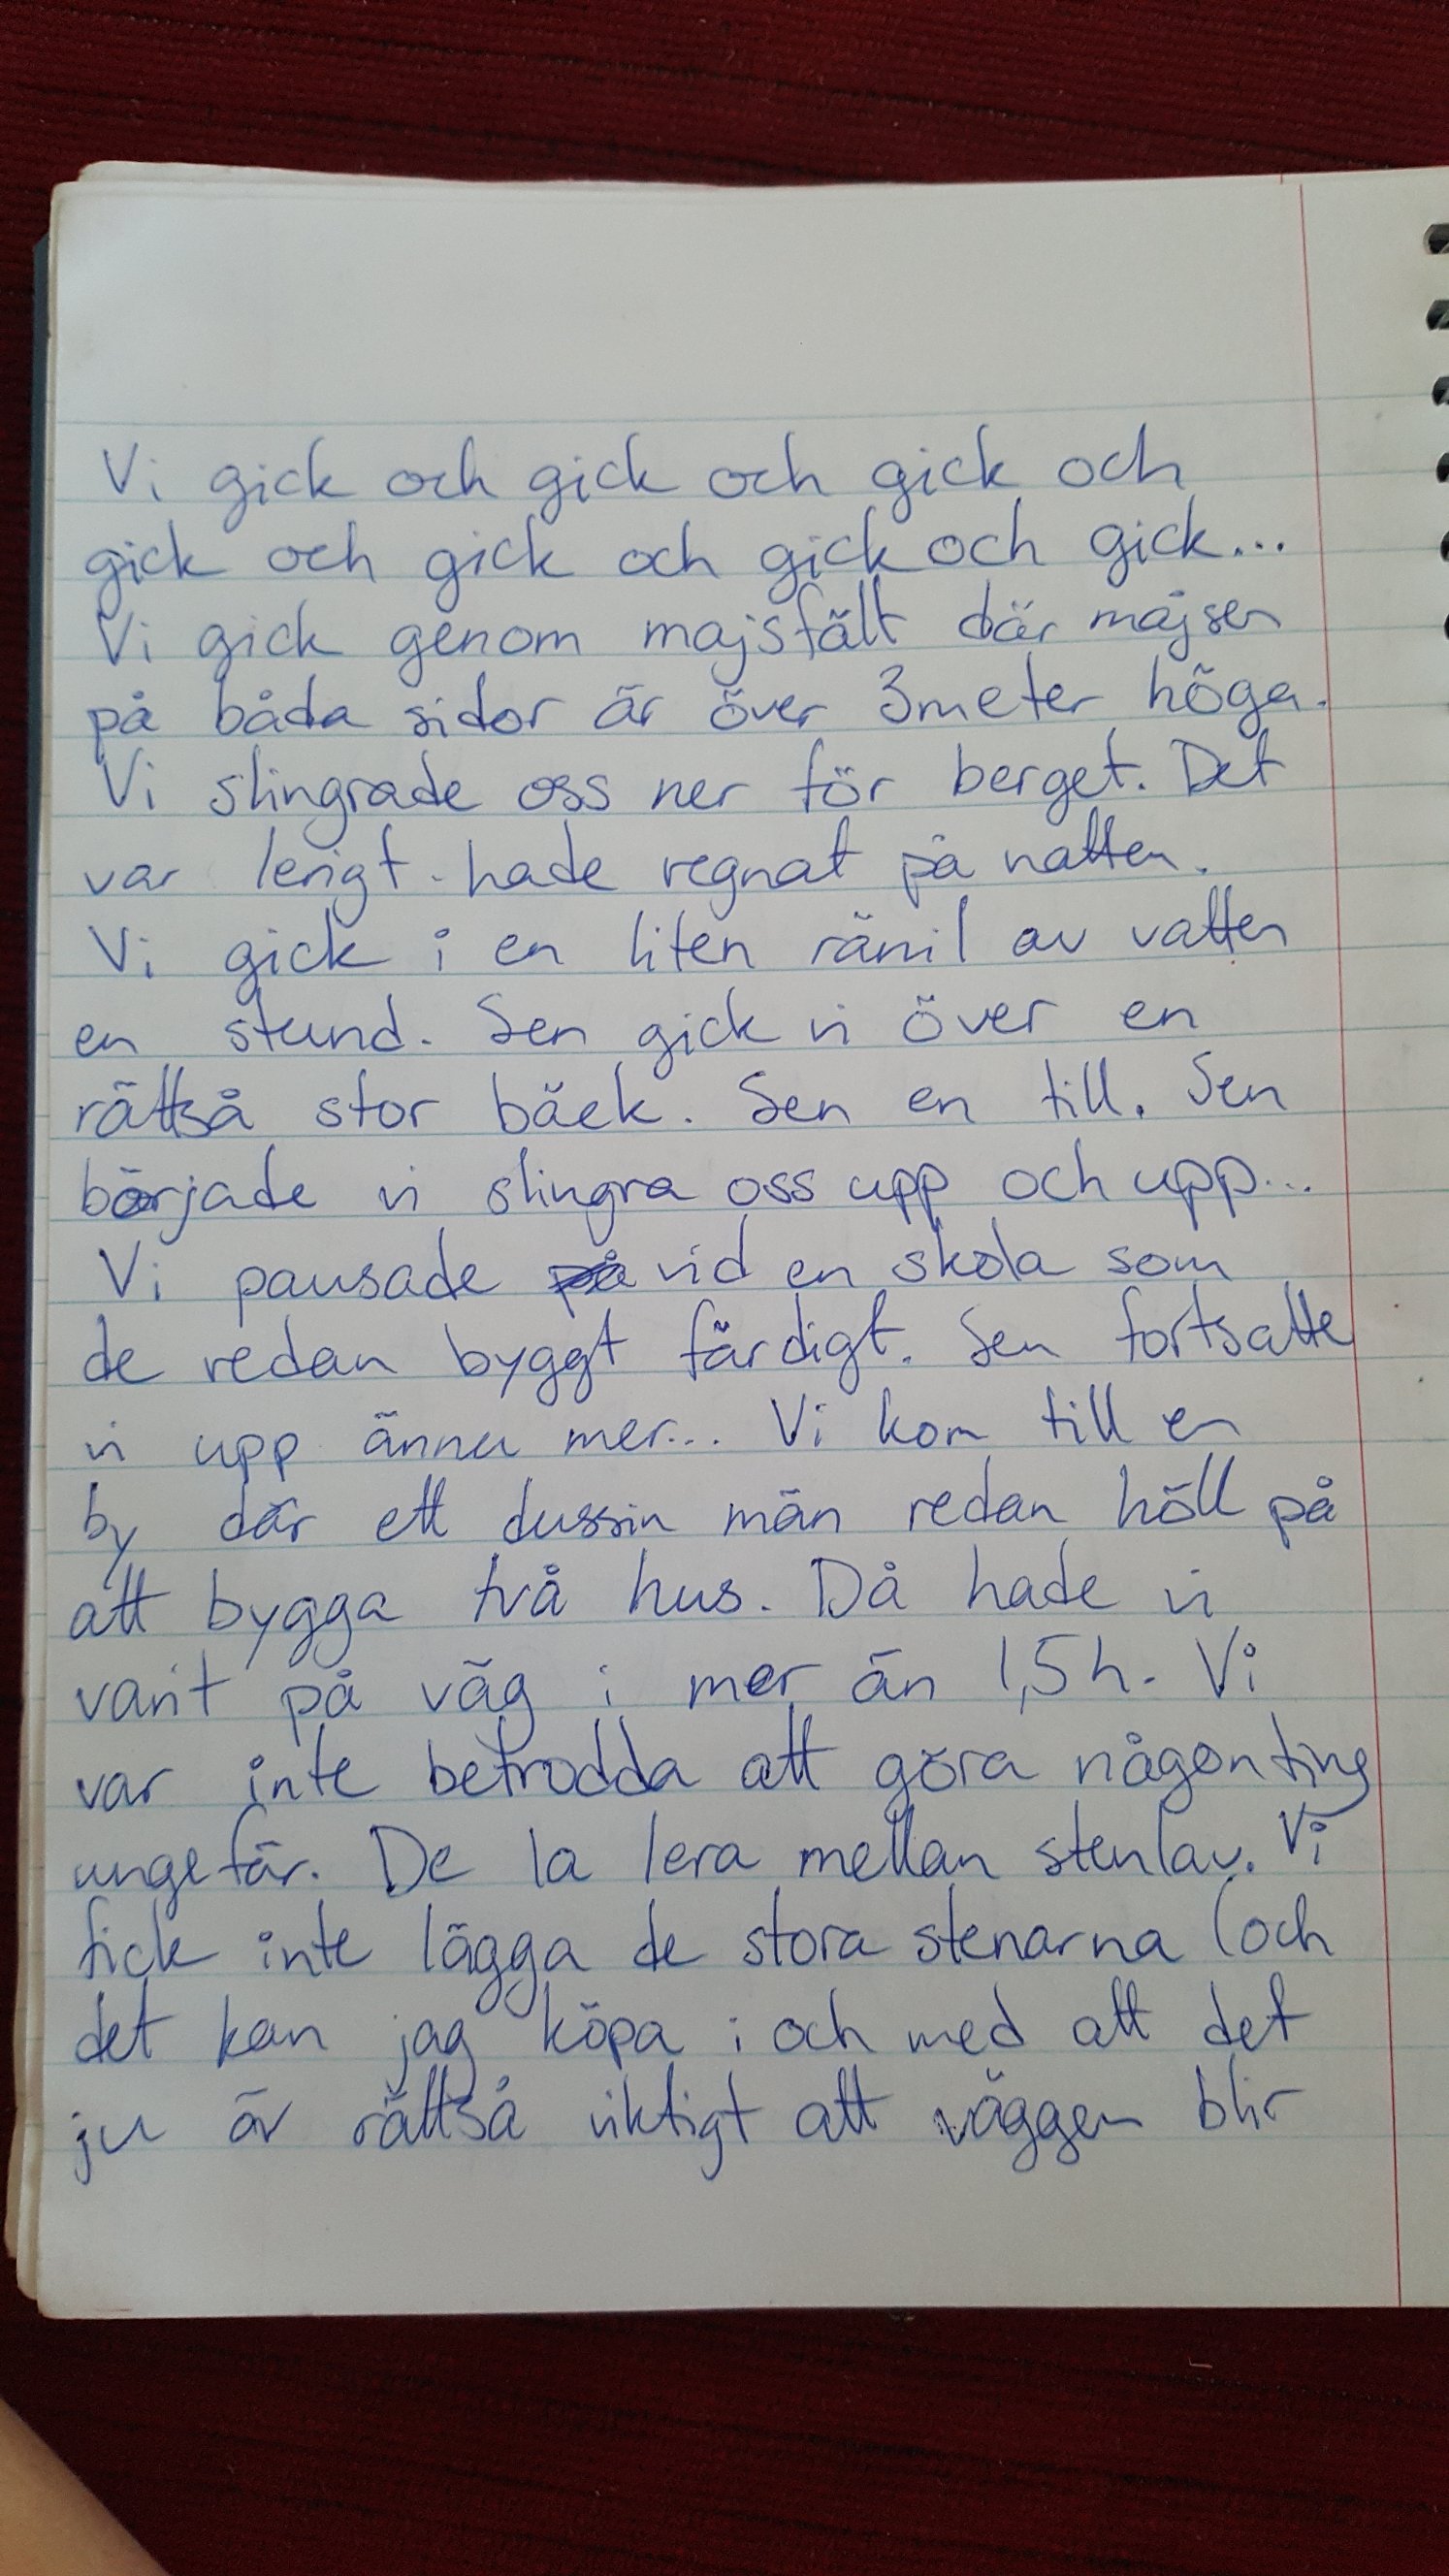 Vi gick och gick och gick och
gick och gick och gick och gick...
Vi gick genom majsfält där majsen
på båda sidor är över 3meter höga.
Vi slingrade oss ner för berget. Det
var lerigt - hade regnat på natten.
Vi gick i en liten rännil av vatten
en stund. Sen gick vi över en
rättså stor bäck. Sen en till. Sen
började vi slingra oss upp och upp...
Vi pausade på vid en skola som
de redan byggt färdigt. Sen fortsatte
vi upp ännu mer... Vi kom till en
by där ett dussin män redan höll på
att bygga två hus. Då hade vi
varit på väg i mer än 1,5h. Vi
var inte betrodda att göra någonting
ungefär. De la lera mellan stenlav. Vi
fick inte lägga de stora stenarna (och
det kan jag köpa i och med att det
ju är rättså viktigt att väggen blir